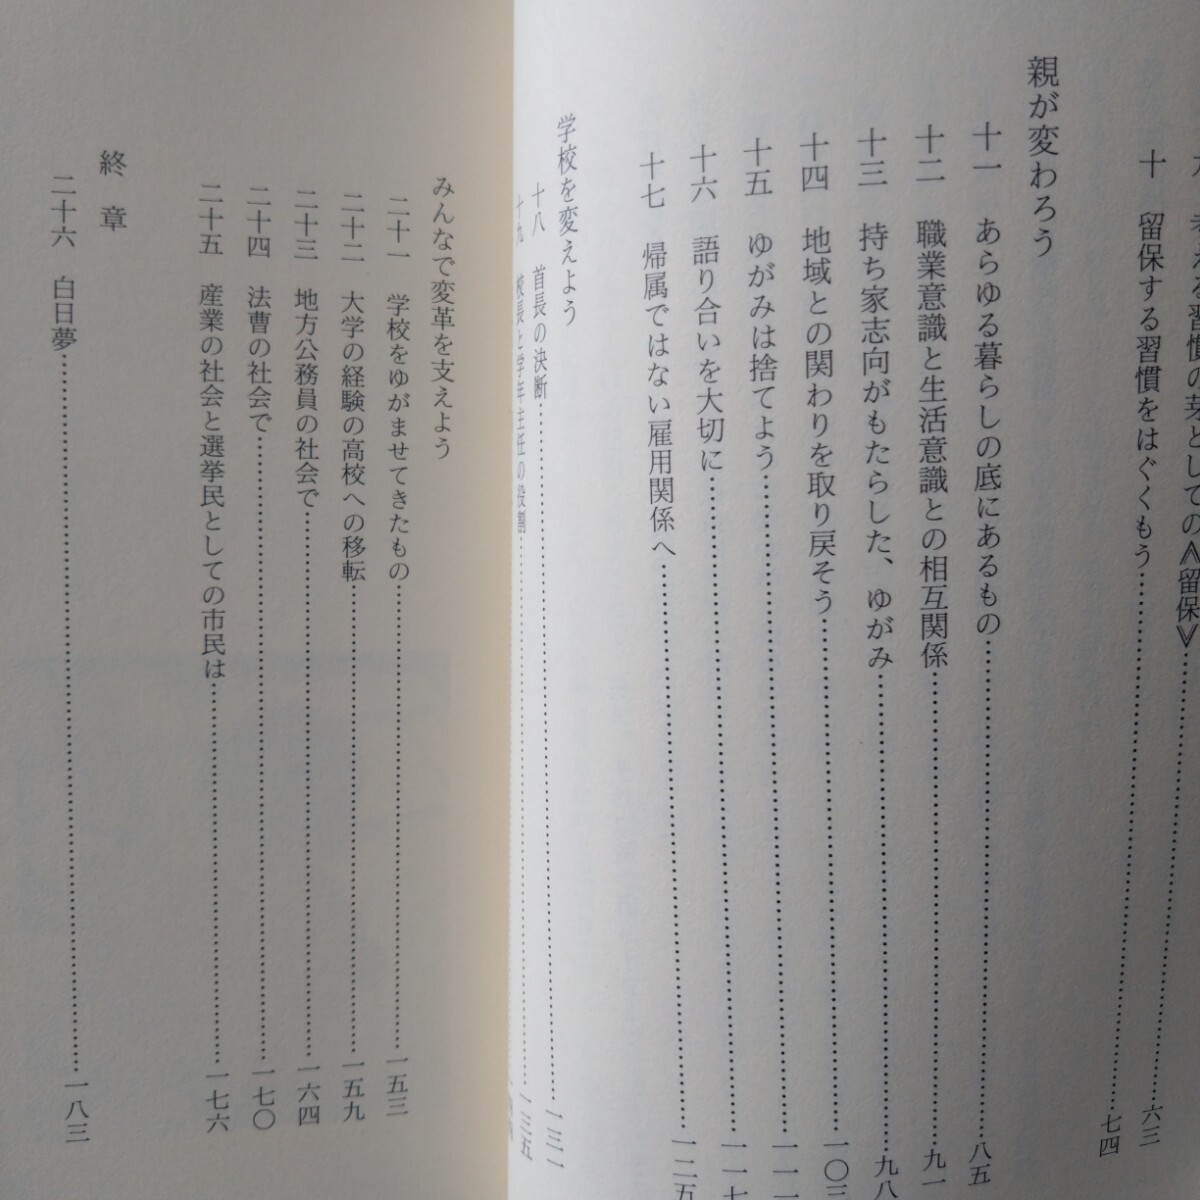 る習慣の芽としての≪留保≫……六三
十　留保する習慣をはぐくもう……七四
親が変わろう
十一　あらゆる暮らしの底にあるもの……八五
十二　職業意識と生活意識との相互関係……九一
十三　持ち家志向がもたらした、ゆがみ……九八
十四　地域との関わりを取り戻そう……一〇三
十五　ゆがみは捨てよう……一一一
十六　語り合いを大切に……一一七
十七　帰属ではない雇用関係へ……一二五
学校を変えよう
十八　首長の決断……一三一
十九　校長と学年主任の役割……一三五
みんなで変革を支えよう
二十一　学校をゆがませてきたもの……一五三
二十二　大学の経験の高校への移転……一五九
二十三　地方公務員の社会で……一六四
二十四　法曹の社会で……一七〇
二十五　産業の社会と選挙民としての市民は……一七六
終　章
二十六　白日夢……一八三